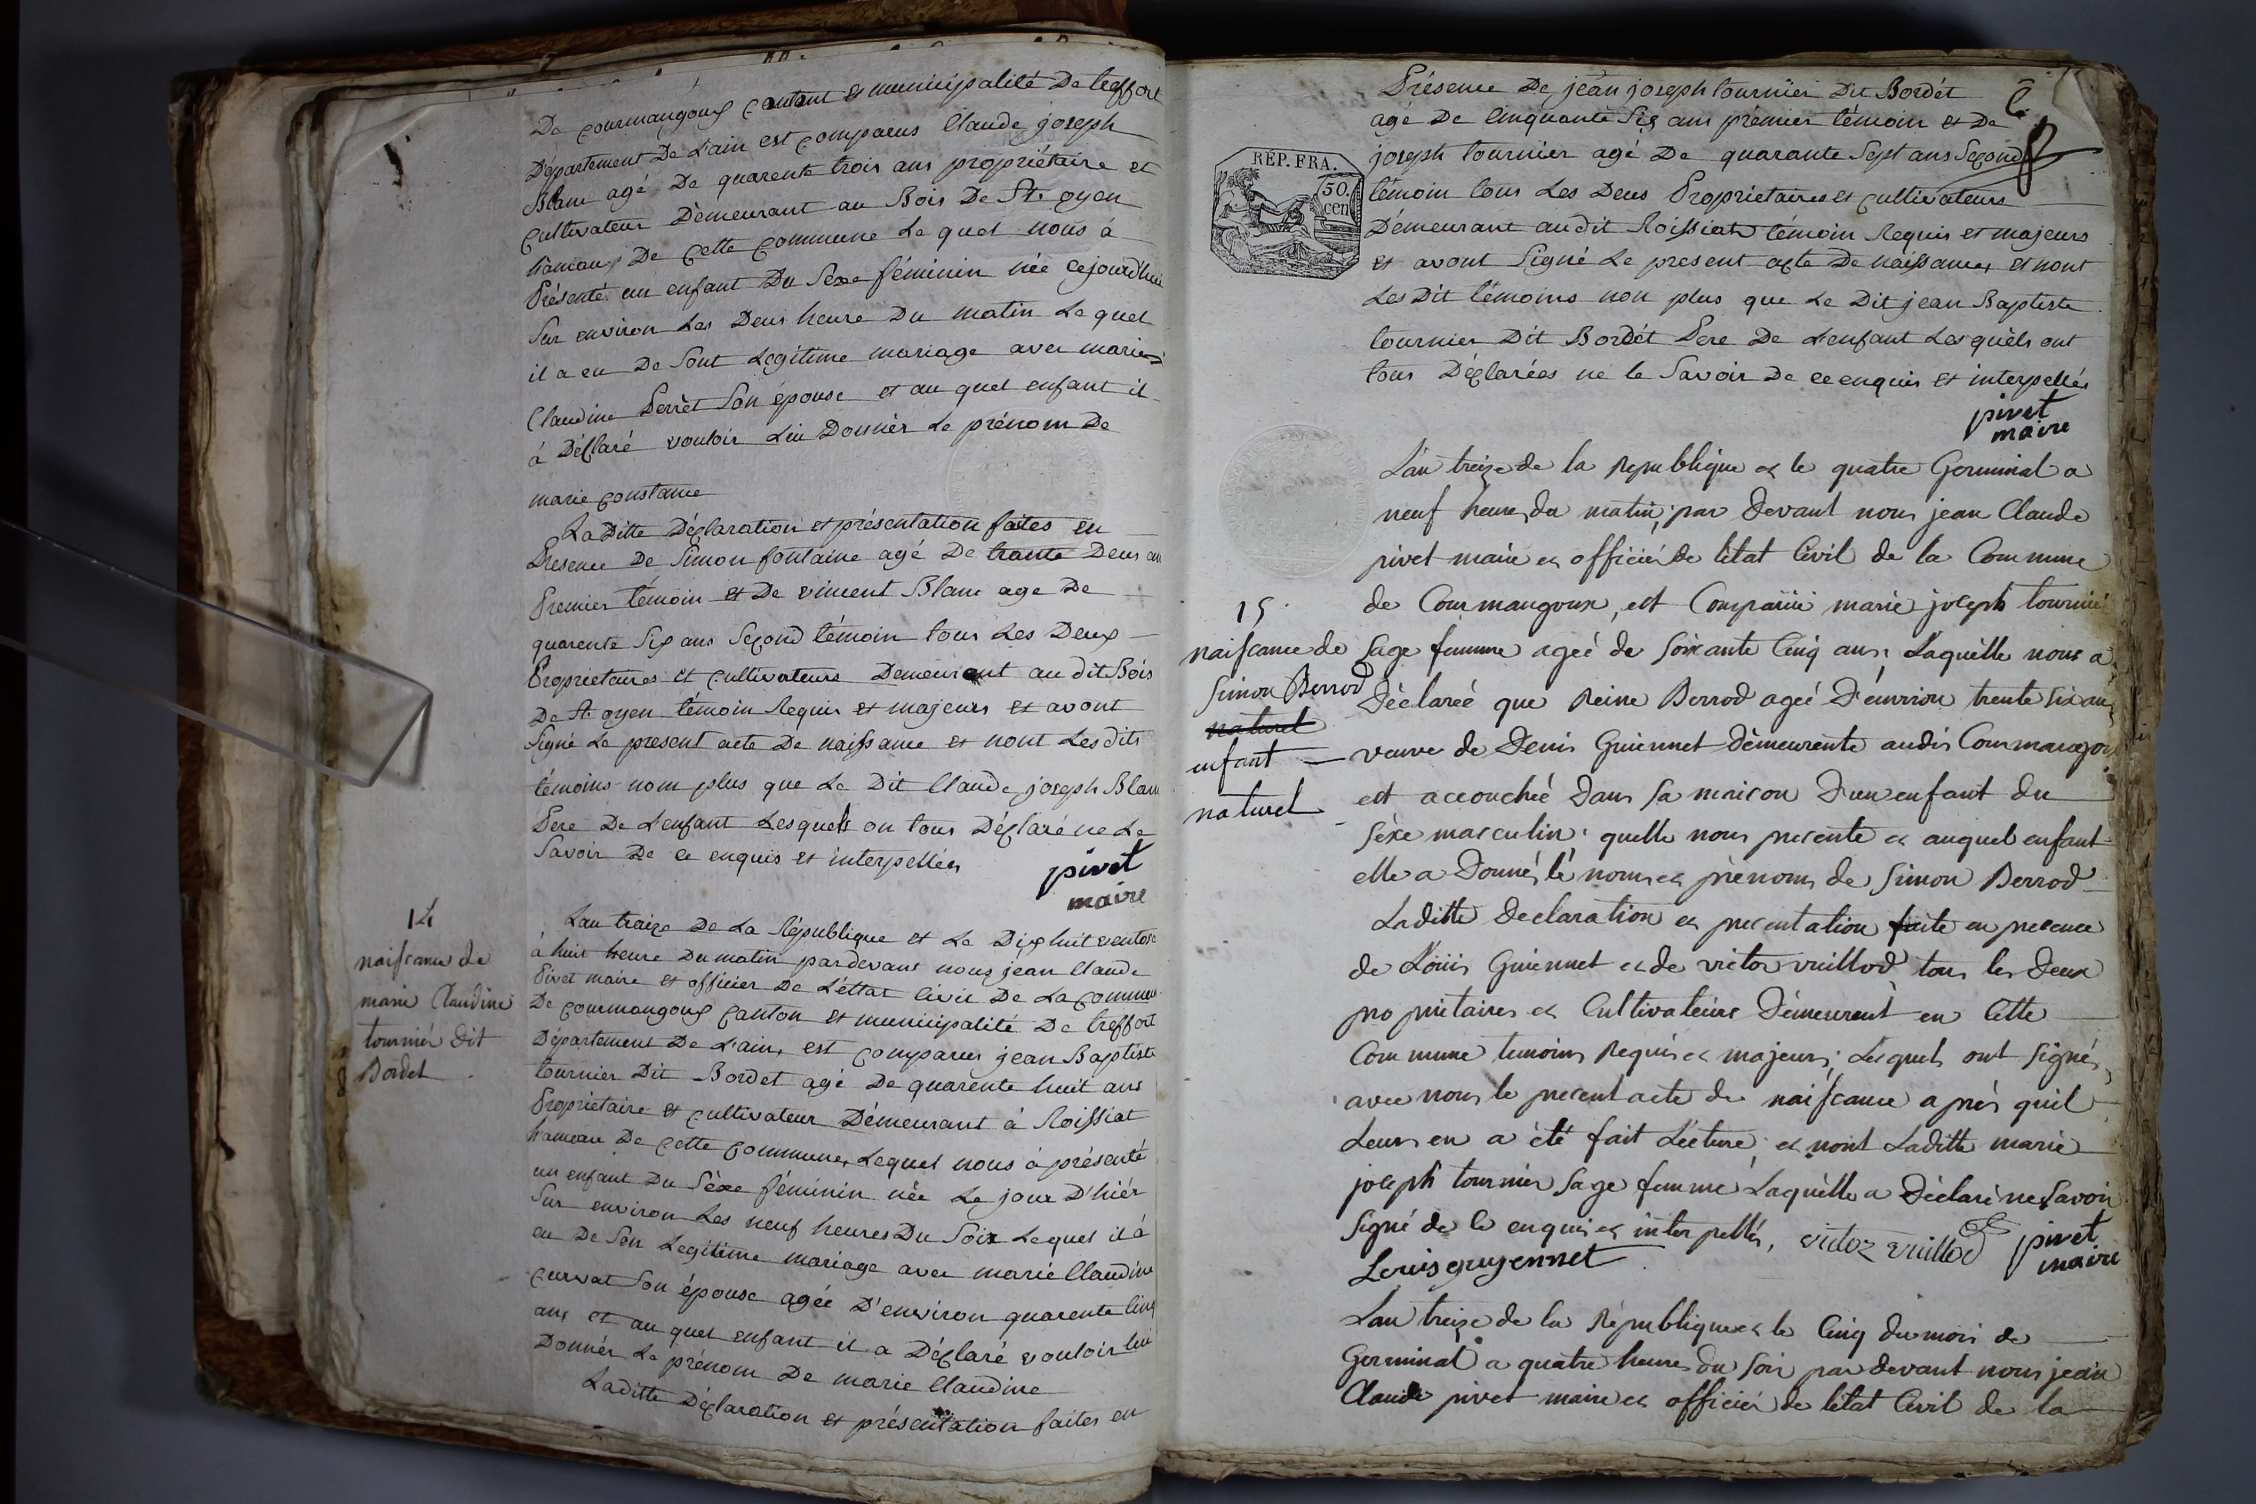 De Courmangoux Cantont et municipalité De treffort
Département De L'ain est comparus Claude joseph
Blanc agé De quarente trois ans propriétaire et
Cultivateur Démeurant au Bois De St. oyen
hameaux De Cette Commune Le quel nous à
Présenté un enfant Du Sexe féminin née cejourd'hui
Sur environ Les Deus heure Du matin Le quel
il a eu De Sont Legitime mariage avec marie
Claudine Perrèt Son épouse et au quel enfant il
à Déclaré vouloir Lui Donnér Le prénom De
marie Constance
La Ditte Déclaration et présentation faites en
Présence De Simon fontaine agé De trante Deus an
Premier témoin et De vincent Blanc age De
quarente Six ans Second témoin tous Les Deux
Proprietaires et Cultivateurs Demeurant au dit Bois
De St oyen témoin Requis et majeurs et avont
Signé Le present acte De naissance et nont Lesdits
témoins nom plus que Le Dit Claude joseph Blanc
Pere De L'enfant Lesquels on tous Déclaré ne Le
Savoir De ce enquis et interpellés
pivet
maire
14
naissance de
marie Claudine
tournier dit
Bordet
Lan traize De La République et Le Dix huit ventose
à huit heure Du matin pardevant nous jean Claude
Pivet maire et officier De L'éttat Civil De La Commune
De Courmangoux Canton et municipalité De treffort
Département De L'ain, est Comparus jean Baptiste
tournier Dit Bordet agé De quarente huit ans
Proprietaire et Cultivateur Démeurant à Roissiat
hameau De Cette Commune, Lequel nous à présenté
un enfant Du Sèxe féminin née Le jour D'hiér
Sur environ Les neuf heures Du Soir Lequel il à
eu De Son Legitime mariage avec marie Claudine
Curvat Son épouse agée D'environ quarente Cinq
ans et au quel enfant il a Déclaré vouloir lui
Donnér Le prénom De marie Claudine
Laditte Déclaration et présentation faites en
Présence De jean joseph tournier Dit Bordét
agé De Cinquante Six ans prémier témoin et De
joseph tournier agé De quarante Sept ans Second
témoin tous Les Deus Proprietaires et Cultivateurs
Démeurant audit Roissiat témoin Requis et majeurs
et avont Signé Le present acte De naissance, et nont
Les Dit témoins non plus que Le Dit jean Baptiste
tournier Dit Bordét Pere De L'enfant Lesquèls ont
tous Déclarées ne le Savoir De ce enquis et interpellés
RÉP. FRA.
50.
cen
pivet
maire
L'an treize de la Republique et le quatre Germinal a
neuf heures du matin, par devant nous jean Claude
pivet maire et officier de l'état Civil de la Commune
de Courmangoux, est Comparüe marie joseph tournier
15
naissance de
Simon Berrod
naturel
enfant
naturel
Sage femme ageé de soixante Cinq ans, Laquelle nous a
Déclareé que Reine Berrod ageé D'environ trente six ans
veuve de Denis Guiennet Démeurente audit Courmangoux
est accouchée Dans sa maison D'un enfant du
Sèxe masculin, quelle nous presente et auquel enfant
elle a Donné, lé noms et prénoms de Simon Berrod
Laditte declaration et presentation faite en presence
de Loüis Guiennet et de victor vuillod tous les deux
propriétaires et Cultivateurs Démeurent en Cette
Commune temoins Requis et majeurs, Lesquels ont signés,
avec nous le present acte de naissance après quil
Leurs en a été fait Lecture, et nont Laditte marie
joseph tournier Sage femme Laquèlle a Déclaré ne Savoir
Signé de Ce enquis et interpellés, victoz vuillod
pivet
maire
Louis guyennet
L'an treize de la République et le Cinq du mois de
Germinal a quatre heures du Soir par devant nous jean
Claude pivet maire et officier de l'état Civil de la